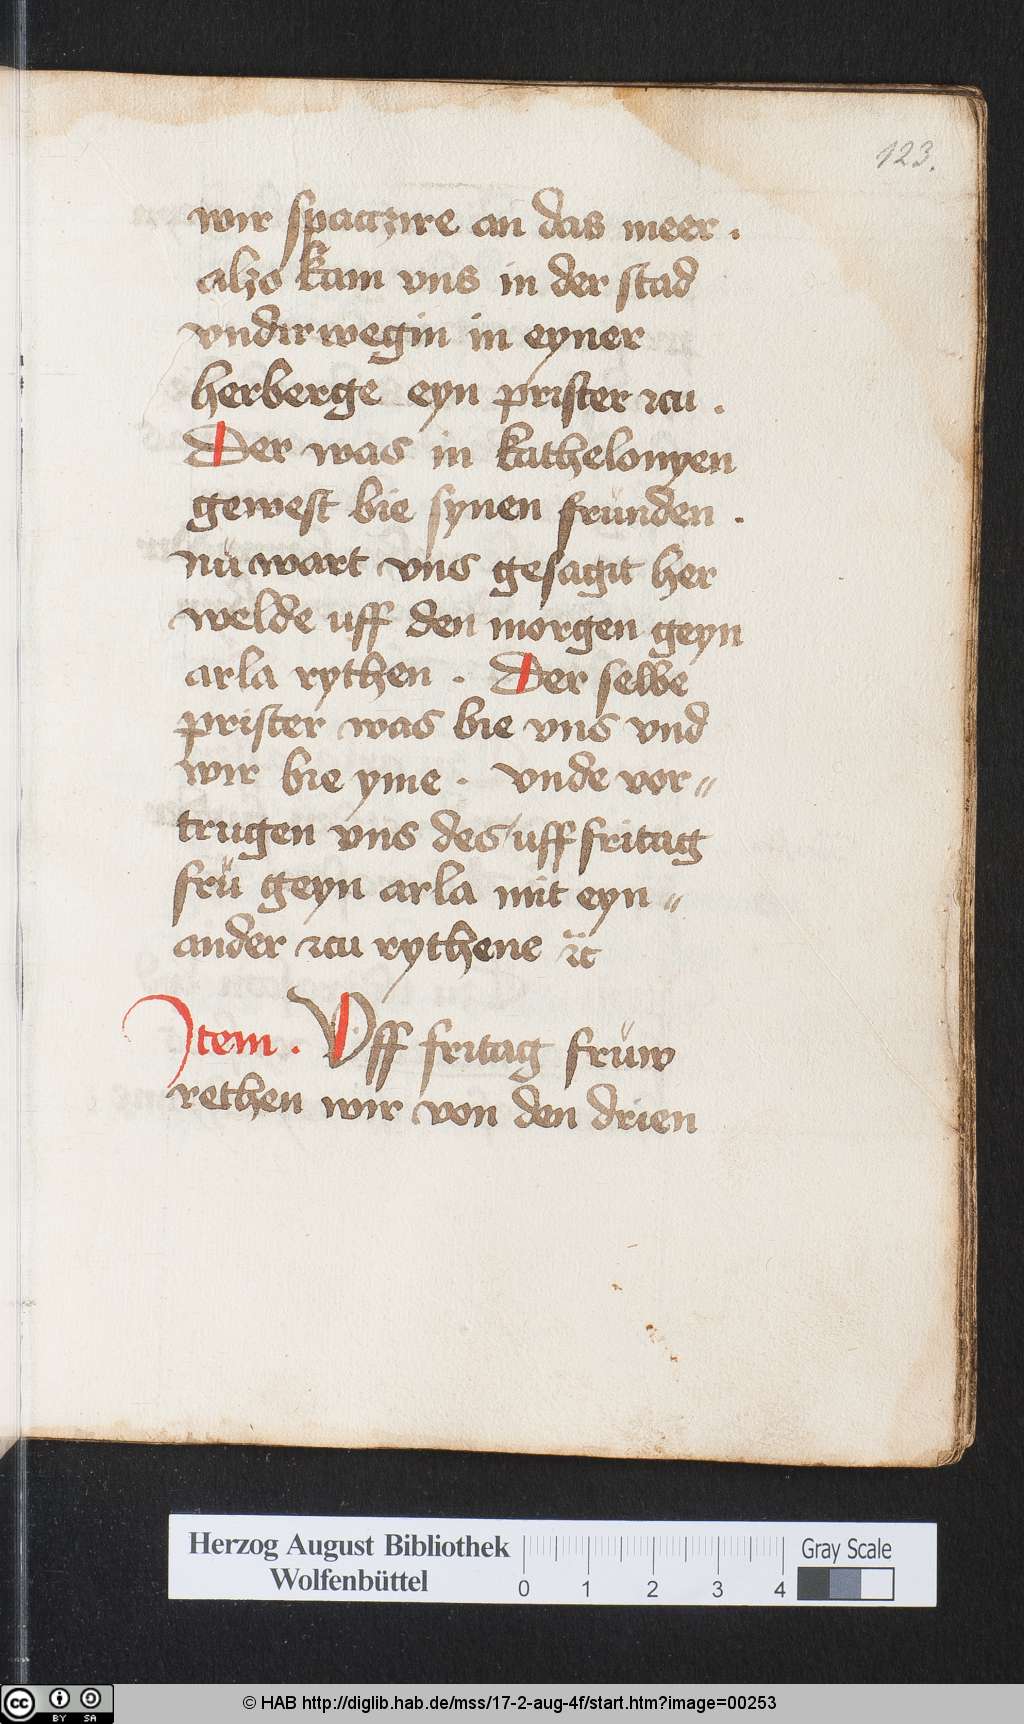 123.
wir spatczire an das meer .
alzo kam vns in der stad
vndirwegin in eyner
herberge eyn prister zcu .
Der was in kathelonyen
gewest bie synen frunden .
nü wart vns gesagit her
welde uff den morgen geyn
arla rythen . Der selbe
prister was bie vns vnd
wir bie yme . vnde vor〃
trugen vns des uff fritag
frü geyn arla mit eyn〃
ander zcu rythene ꝛc
Item . Vff fritag früw
rethen wir von den drien
Herzog August Bibliothek
Wolfenbüttel
0 1 2 3 4
Gray Scale
cc BY SA
© HAB http://diglib.hab.de/mss/17-2-aug-4f/start.htm?image=00253